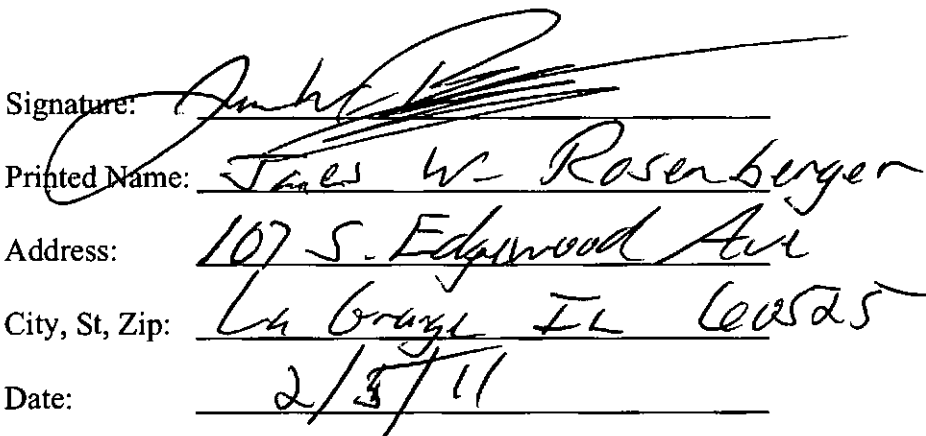 Signature:
Printed Name: James W. Rosenberger
Address: 107 S. Edgewood Ave
City, St, Zip: La Grange IL 60525
Date: 2/5/11